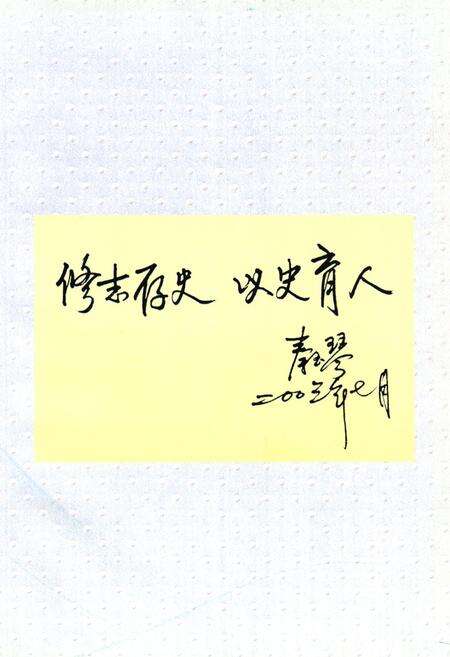 修志存史 以史育人
秦玉琴
二〇〇三年七月